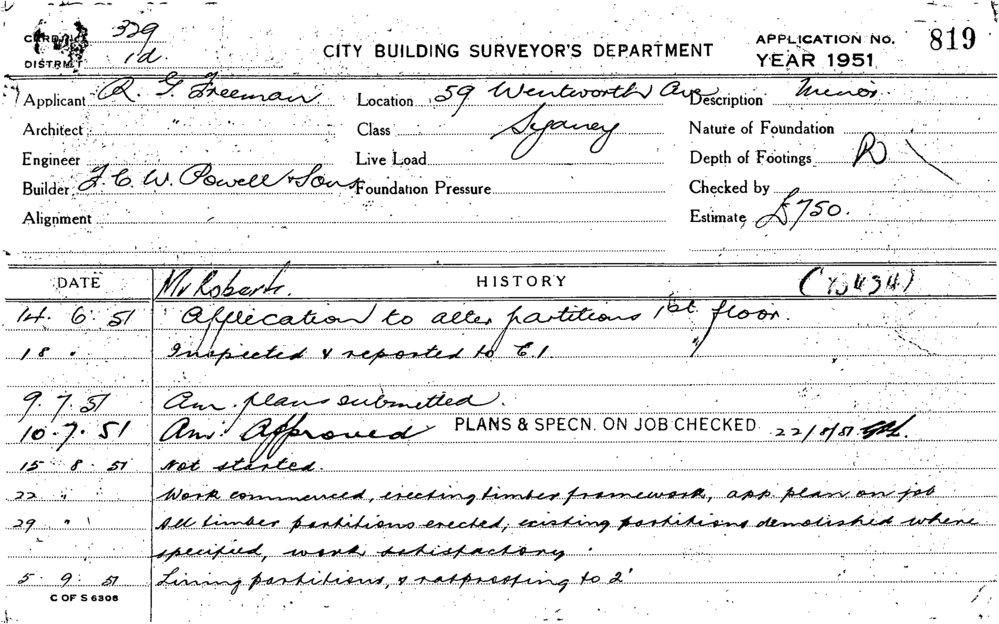 CARD No. 329
CITY BUILDING SURVEYOR'S DEPARTMENT
APPLICATION No. 819
DISTRICT 1d.
YEAR 1951
Applicant R. G. Freeman
Location 59 Wentworth Ave
Description Minor
Architect "
Class Sydney
Nature of Foundation
Engineer
Live Load
Depth of Footings
Builder F. C. W. Powell & Sons
Foundation Pressure
Checked by
Alignment
Estimate £750.
DATE Mr Roberts. HISTORY
14. 6. 51 Application to alter partitions 1st floor.
18 " Inspected & reported to E.I.
9. 7. 51 Am. plans submitted.
10. 7. 51 Am. Approved PLANS & SPECN. ON JOB CHECKED 22/8/51
15 . 8 . 51 Not started.
22 " Work commenced, erecting timber framework, app. plan on job
29 " All timber partitions erected, existing partitions demolished where
specified, work satisfactory.
5 . 9 . 51 Lining partitions, & ratproofing to 2'
C OF S 6306